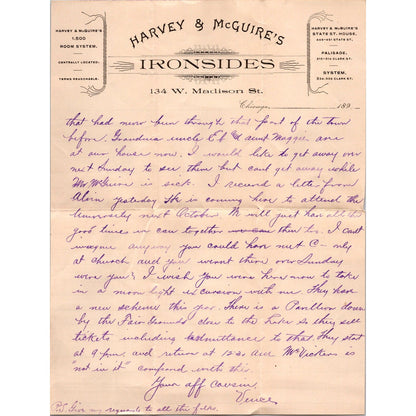 HARVEY & McGUIRE'S
1,500
ROOM SYSTEM.
CENTRALLY LOCATED.
TERMS REASONABLE.
HARVEY & McGUIRE'S
IRONSIDES
134 W. Madison St.
HARVEY & McGUIRE'S
STATE ST. HOUSE,
PALISADE,
SYSTEM,
Chicago, 189
that had never been through that part of the town
before. Grandma uncle Eb & aunt Maggie are
at our house now. I would like to get away over
next Sunday to see them but cant get away while
Mr McGuire is sick. I received a letter from
yesterday He is coming here to attend the
University next October. We will just have all the
good times in can together then too. I cant
imagine any way you could have met C— only
at church and you wernt there over Sunday
were you? I wish you were here now to take
in a moon light excursion with me. They have
a new scheme this year. There is a Pavillion down
by the Fair Grounds close to the Lake & they sell
tickets including admittance to that They start
at 9 P.M. and return at 12:30 and McVickers is
"not in it" compared with this.
Your aff cousin,
P.S. Give my regards to all the folks.